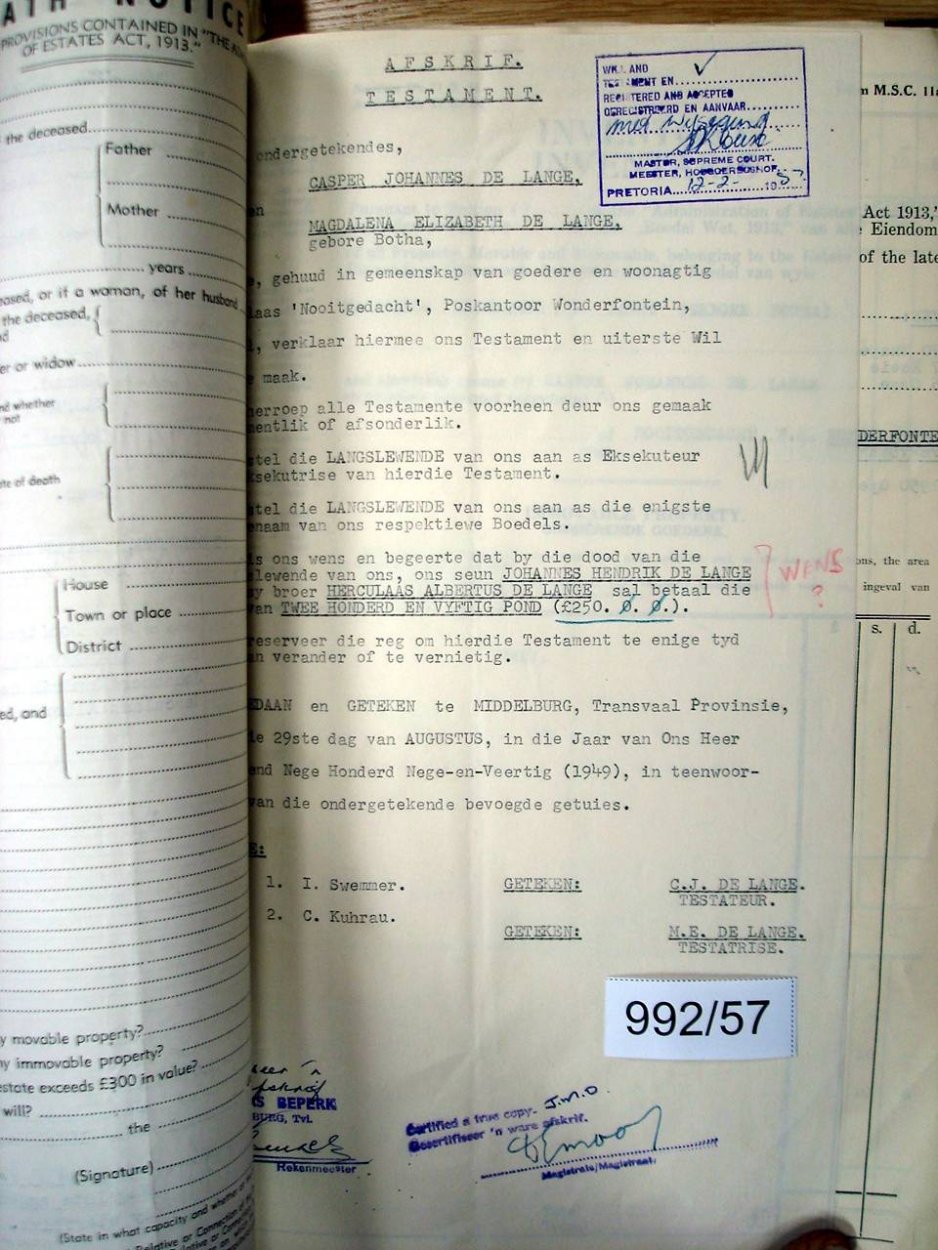 NOTICE
PROVISIONS CONTAINED IN "THE
OF ESTATES ACT, 1913."
the deceased
Father
Mother
years
eased, or if a woman, of her husband
the deceased,
er or widow
nd whether
not
te of death
House
Town or place
District
ed, and
y movable property?
ny immovable property?
estate exceeds £300 in value?
will?
the
(Signature)
(State in what capacity and whether
Relative or Connection of the
AFSKRIF.
TESTAMENT.
WILL AND
TESTAMENT EN
REGISTERED AND ACCEPTED
GEREGISTREERD EN AANVAAR
MASTER, SUPREME COURT.
MEESTER, HOOGGEREGSHOF.
PRETORIA 12-2- 1957
ondergetekendes,
CASPER JOHANNES DE LANGE,
en
MAGDALENA ELIZABETH DE LANGE,
gebore Botha,
, gehuud in gemeenskap van goedere en woonagtig
laas 'Nooitgedacht', Poskantoor Wonderfontein,
, verklaar hiermee ons Testament en uiterste Wil
e maak.
herroep alle Testamente voorheen deur ons gemaak
entlik of afsonderlik.
stel die LANGSLEWENDE van ons aan as Eksekuteur
ksekutrise van hierdie Testament.
stel die LANGSLEWENDE van ons aan as die enigste
naam van ons respektiewe Boedels.
is ons wens en begeerte dat by die dood van die
slewende van ons, ons seun JOHANNES HENDRIK DE LANGE
y broer HERCULAAS ALBERTUS DE LANGE sal betaal die
van TWEE HONDERD EN VYFTIG POND (£250. 0. 0.).
WENS
?
reserveer die reg om hierdie Testament te enige tyd
an verander of te vernietig.
EDAAN en GETEKEN te MIDDELBURG, Transvaal Provinsie,
ie 29ste dag van AUGUSTUS, in die Jaar van Ons Heer
end Nege Honderd Nege-en-Veertig (1949), in teenwoor-
van die ondergetekende bevoegde getuies.
E:
1. I. Swemmer. GETEKEN: C.J. DE LANGE.
TESTATEUR.
2. C. Kuhrau.
GETEKEN: M.E. DE LANGE.
TESTATRISE.
992/57
S BEPERK
BURG, Tvl.
Rekenmeester
Certified a true copy. J.M.O
Gesertifiseer 'n ware afskrif.
Magistrate/Magistraat.
n M.S.C. 11
Act 1913,"
Eiendom
of the late
DERFONTE
ons, the area
ingeval van
s. d.